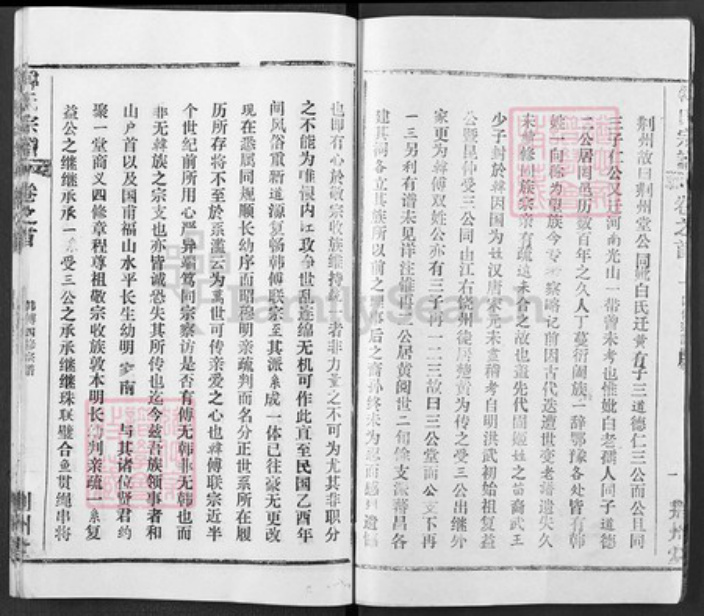 荆州故曰荆州堂公同妣白氏迁黄有子三道德仁三公而公且同
三子仁公又迁河南光山一带兽未考也惟妣白老孺人同子道德
二公居闵邑历数百年之久人丁蔓衍阖族一辞鄂豫各处皆有韩
姓子向称为望族今专察略记前因古代迭遭世变老谱遗失久
未曾修同族宗亲有疏远未合之故也盖先代闵姬姓之苗裔武王
少子封於韩因国为姓汉唐宋元未查稽考自明洪武初始祖复益
公暨昆仲受三公同由江右饶州徐居楚黄为传之受三公出继外
家更为韩傅双姓公亦有三子再一二三故曰三公堂而公文下再
一三另利有谱未见详注维再公居黄阁世二旬馀支派蕃昌各
建其祠各立其族所以前之理事后之裔孙终未为忍而感
也即有心於敬宗收族维持者非力量之不可为尤其非职分
之不能为唯恨内江攻争世乱连绵无机可作此直至民国乙酉年
间风俗重新追源复畅韩傅联宗至其派系成一体已往毫无更改
现在悉属同规顺长幼序而昭穆明亲疏判而名分正世系所在履
历所存将不至於紊滥云为万世可传亲爱之心也韩傅联宗近半
个世纪前所用心严异端笃同宗察访是否有傅无韩非无韩也而
非无韩族之宗支也亦皆诚恐失其所传也迄今兹吾族领事者和
山户首以及国甫福山水平长生幼明 南 与其诸位贤君约
聚一堂商义四修章程尊祖敬宗收族敦本明长 判亲疏一系复
益公之继继承承一系受三公之承承继继珠联璧合鱼贯绳串将
宗谱
卷之首
韩傅四修宗谱
荆州堂
FamilySearch